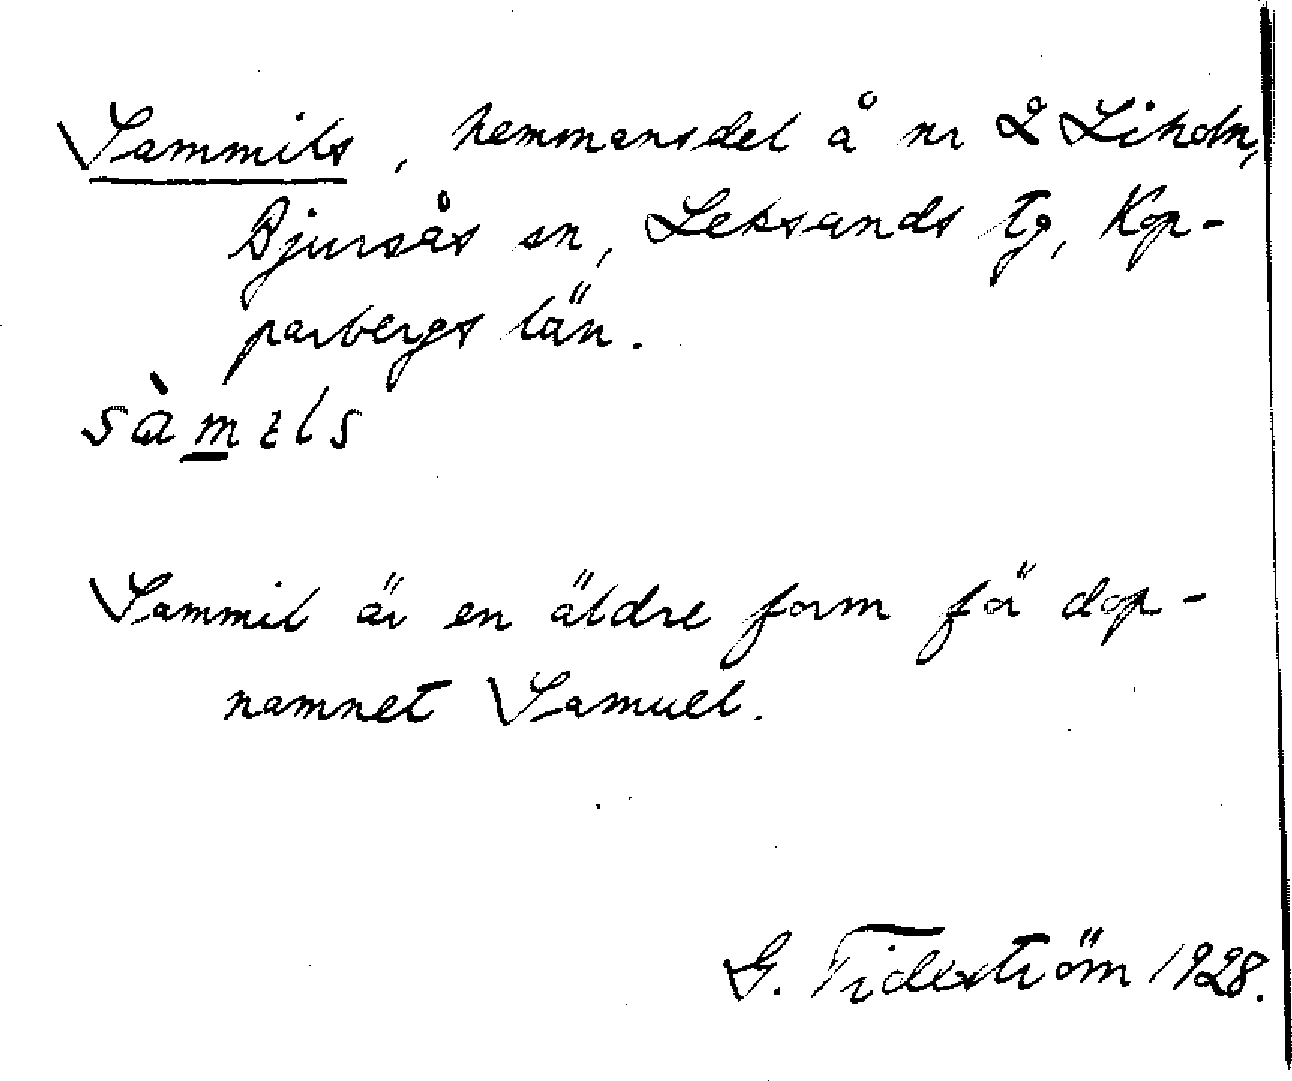 Sammils, hemmansdel å nr 2 Liholn,
Bjursås sn, Leksands tg, Kop-
parbergs län.
sàmɩls
Sammil är en äldre form för dop-
namnet Samuel.
G. Tideström 1928.